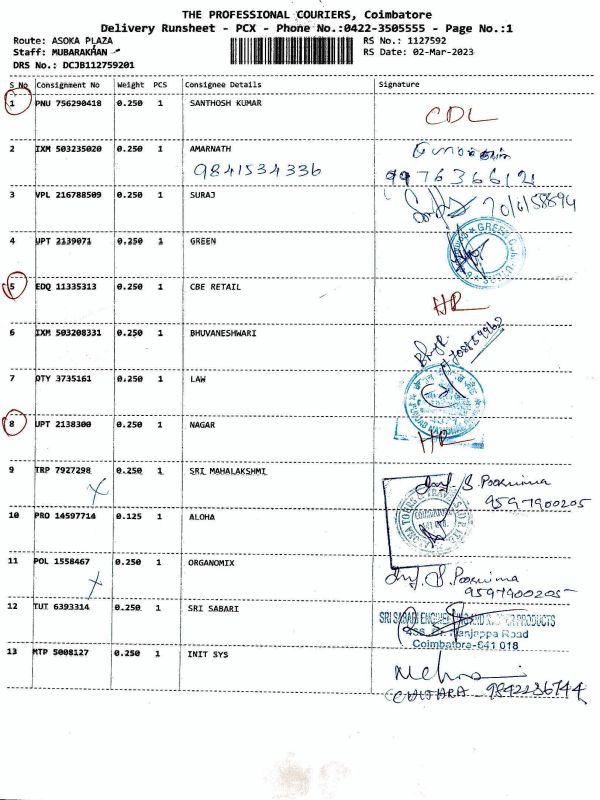 THE PROFESSIONAL COURIERS, Coimbatore
Delivery Runsheet - PCX - Phone No.:0422-3505555 - Page No.:1
Route: ASOKA PLAZA
Staff: MUBARAKHAN
DRS No.: DCJB112759201
RS No.: 1127592
RS Date: 02-Mar-2023
S No Consignment No Weight PCS Consignee Details Signature
1 PNU 756290418 0.250 1 SANTHOSH KUMAR CDL
2 IXM 503235020 0.250 1 AMARNATH
9841534336 9976366121
3 VPL 216788509 0.250 1 SURAJ
4 UPT 2139071 0.250 1 GREEN
5 EDQ 11335313 0.250 1 CBE RETAIL HR
6 IXM 503208331 0.250 1 BHUVANESHWARI
7 OTY 3735161 0.250 1 LAW
8 UPT 2138300 0.250 1 NAGAR HR
9 TRP 7927298 0.250 1 SRI MAHALAKSHMI S. Poornima
X 9597900205
10 PRO 14597714 0.125 1 ALOHA
11 POL 1558467 0.250 1 ORGANOMIX S. Poornima
X 9597900205
12 TUT 6393314 0.250 1 SRI SABARI SRI SABARI ENGINEERING AND RUBBER PRODUCTS
Nanjappa Road
Coimbatore-641 018
13 MTP 5008127 0.250 1 INIT SYS
9842236744